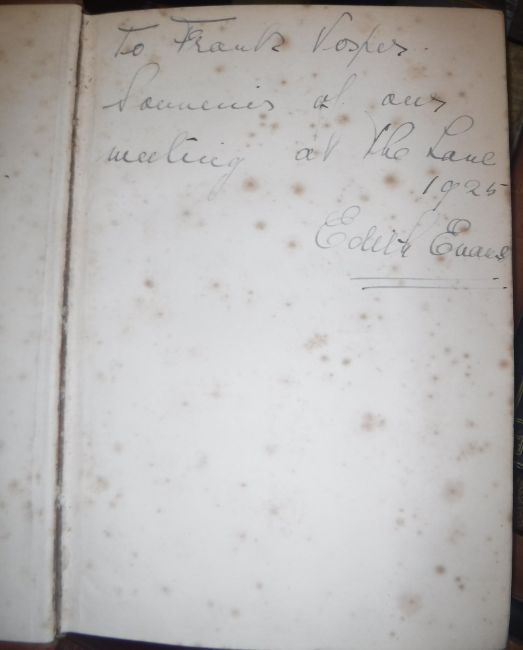 To Frank Vosper.
Souvenir of our
meeting at The Lane
1925
Edith Evans